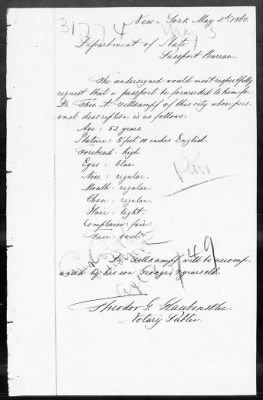 New-York May 2d 1861.
Department of State
Passport Bureau.
The undersigned would most respectfully
request that a passport be forwarded to him for
Dr. Theo. A. Tellkampf of this city whose per-
sonal description is as follows:
Age: 52 years
Stature: 5 feet 10 inches English.
Forehead: high
Eyes: blue
Nose: regular.
Mouth: regular.
Chin: regular.
Hair: light.
Complexion: fair
Face: oval
Dr. Tellkampf will be accomp-
anied by his son George, years old
Theodor G.
Notary Public